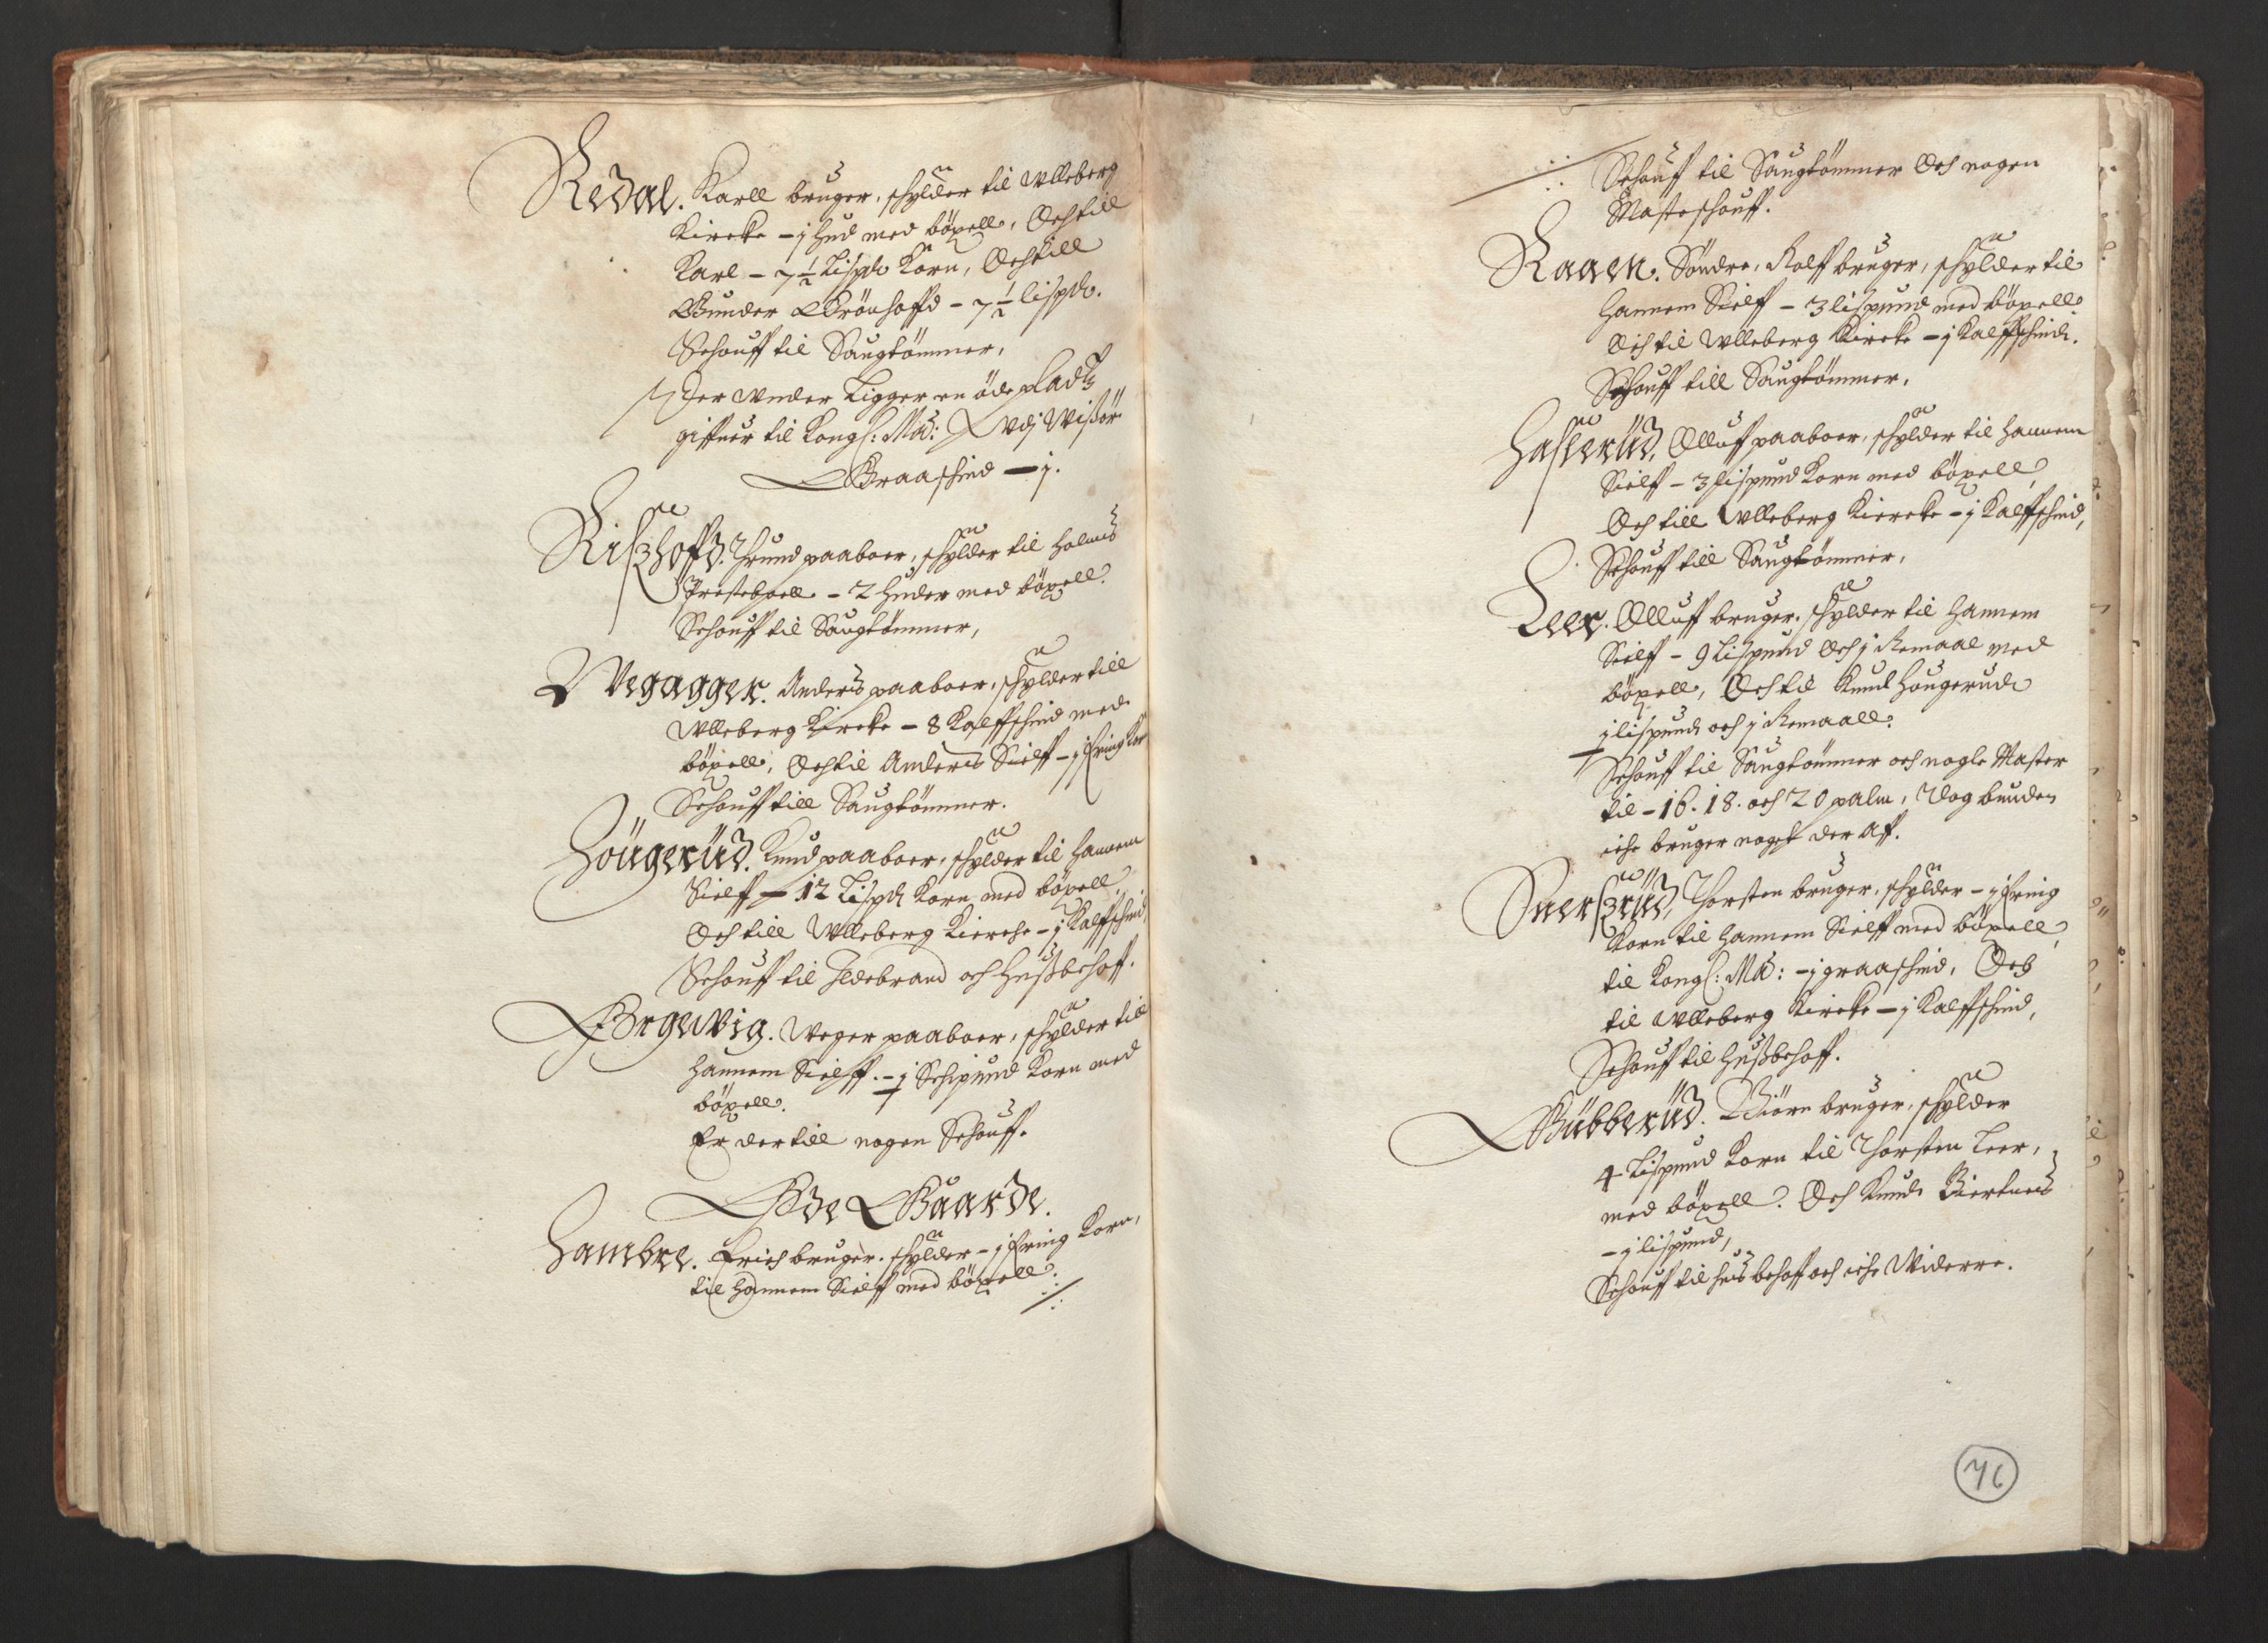 Redal. Karll bruger, schylder til Ulleberg
Kircke - j hud med böxell, Och till
Karl - 7½ Lispd Korn, Och till
Gunder Grönhoffd - 7½ lispd.
Schouff til Saugtömmer,
Der under Ligger en öde pladtz
giffuer til Kongl: Ma: Udj Wisör
Graaschind - j.
Riszhoffd. Thrund paaboer, schylder til Holmis
Presteboell - 2 huder med böxell.
Schouff til Saugtömmer,
Wegagger. Anders paaboer, schylder till
Ulleberg Kircke - 8 Kalffschind med
böxell, Och til Anders Sielff - j fring Kor
Schouff till Saugtömmer.
Höugerüd. Knud paaboer, schylder til hannem
Sielff - 12 Lispd Korn med böxell.
Och till Ulleberg Kierche - j Kalffschind,
Schouff til Ildebrand och Hussbehoff.
Brgewig. Weger paaboer, schylder till
hannem Sielff. - j Schipund Korn med
böxell.
Er der till nogen Schouff.
Øde Gaarde.
Hambre. Erich bruger. schylder - j fring Korn,
til hannem Sielff med böxell.
Schouff til Saugtömmer Och nogen
Masteschouff.
Raaen. Söndre, Rolff bruger, schylder til
hannem Sielff - 3 lispund med böxell
Och til Ulleberg Kircke - j Kalffschind.
Schouff till Saugtömmer,
Hasserüd, Olluff paaboer, schylder til hannem
Sielff - 3 lispund Korn med böxell,
Och till Ulleberg Kiercke - j Kalffschind,
Schouff till Saugtömmer,
Leer. Olluff bruger. schylder til hannem
Sielff - 9 Lispund Och j Remaal med
böxell, Och til Knud Hougerud
j lispund och j Remaall.
Schouff til Saugtömmer och nogle Master
til - 16. 18. och 20 palm, Dog bunden
iche bruger noget der Aff.
Suerszrüd, Thorsten bruger, schylder - j fring
Korn til hannem Sielff med böxell,
til Kongl: Ma: - j graaschind, Och
til Ulleberg Kircke - j Kalffschind,
Schouff til Hussbehoff.
Gubberüd. Biörn bruger, schylder
4 Lispund Korn til Thorsten Leer,
med böxell. Och Knud Biertnes
- j lispund,
Schouff til hus behoff och iche Widerre.
76